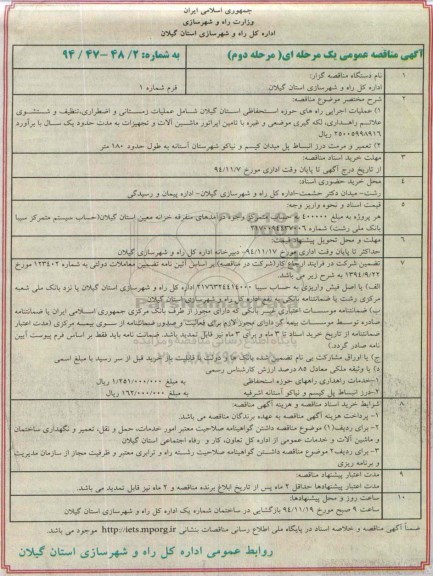 جمهوری اسلامی ایران
وزارت راه و شهرسازی
اداره کل راه و شهرسازی استان گیلان
آگهی مناقصه عمومی یک مرحله ای( مرحله دوم)
به شماره: ۴۸/۲ -۴۷ / ۹۴
۱
نام دستگاه مناقصه گزار:
اداره کل راه و شهرسازی استان گیلان
فرم شماره ۱
۲
شرح مختصر موضوع مناقصه:
۱) عملیات اجرایی راه های حوزه استحفاظی استان گیلان شامل عملیات زمستانی و اضطراری،تنظیف و شستشوی
علائم راهداری، لکه گیری موضعی و غیره با تامین اپراتور ماشین آلات و تجهیزات به مدت حدود یک سال با برآورد
۲۵۰۰۵۹۹۸۹۱۶ ریال
۲) تعمیر و مرمت درز انبساط پل میدان کیسم و نیاکو شهرستان آستانه به طول حدود ۱۸۰ متر
۳
مهلت خرید اسناد مناقصه:
از تاریخ درج آگهی تا پایان وقت اداری مورخ ۹۴/۱۱/۷
۴
محل خرید حضوری اسناد:
رشت- میدان دکتر حشمت-اداره کل راه و شهرسازی گیلان- اداره پیمان و رسیدگی
۵
قیمت اسناد و نحوه واریز وجه:
هر پروژه به مبلغ ۴۰۰۰۰۰ به حساب متمرکز وجوه درآمدهای متفرقه خزانه معین استان گیلان(حساب سیستم متمرکز سیبا
بانک ملی رشت) شماره
۶
مهلت و محل تحویل پیشنهاد قیمت:
حداکثر تا پایان وقت اداری مورخ ۹۴/۱۱/۱۷- دبیرخانه اداره کل راه و شهرسازی گیلان
۷
تضمین شرکت در فرایند ارجاع کار(شرکت در مناقصه) بر اساس آئین نامه تضمین معاملات دولتی به شماره ۱۲۳۴۰۲ مورخ
۱۳۹۴/۹/۲۲ به شرح زیر می باشد.
الف) یا اصل فیش واریزی به حساب سیبا ۲۱۷۷۶۳۲۴۴۱۴۰۰۰ اداره کل راه و شهرسازی استان گیلان یا نزد بانک ملی شعبه
مرکزی رشت یا ضمانتنامه بانکی به نفع اداره کل راه و شهرسازی استان گیلان
ب) ضمانتنامه موسسات اعتباری غیر بانکی که دارای مجوز از طرف بانک مرکزی جمهوری اسلامی ایران یا ضمانتنامه
صادره توسط موسسات بیمه گر دارای مجوز لازم برای فعالیت و صدور ضمانتنامه از سوی بیمه مرکزی (مدت اعتبار
ضمانتنامه از تاریخ خرید اسناد تا ۳ ماه و برای ۳ ماه نیز قابل تمدید باشد. ضمانت نامه باید فقط بر اساس فرم پیوست آیین
نامه صادر گردد.)
ج) یا اوراق مشارکت بی نام تضمین شده بانک ها و دولت با قابلیت باز خرید قبل از سر رسید با مبلغ اسمی
د) یا وثیقه ملکی معادل ۸۵ درصد ارزش کارشناسی رسمی
۱-خدمات راهداری راههای حوزه استحفاظی به مبلغ ۱/۲۵۱/۰۰۰/۰۰۰ ریال
۲-درز انبساط پل کیسم و نیاکو آستانه اشرفیه به مبلغ ۱۶۲/۰۰۰/۰۰۰ ریال
۸
شرایط خرید اسناد مناقصه و هزینه آگهی مناقصه:
۱- پرداخت هزینه آگهی مناقصه به عهده برندگان مناقصه می باشد.
۲- برای ردیف(۱) موضوع مناقصه داشتن گواهینامه صلاحیت معتبر امور خدمات، حمل و نقل، تعمیر و نگهداری ساختمان
و ماشین آلات و خدمات عمومی از اداره کل تعاون، کار و رفاه اجتماعی استان گیلان
۳- برای ردیف۲ موضوع مناقصه داشتن گواهینامه صلاحیت رشته راه و ترابری معتبر و ظرفیت مجاز از سازمان مدیریت
و برنامه ریزی
۹
مدت اعتبار پیشنهاد مناقصه:
مدت اعتبار پیشنهادها حداقل ۲ ماه پس از تاریخ ابلاغ برنده مناقصه و ۲ ماه نیز قابل تمدید می باشد.
۱۰
ساعت روز و محل پیشنهادها:
ساعت ۹ صبح مورخ ۹۴/۱۱/۱۹ بازگشایی در ساختمان شماره یک اداره کل راه و شهرسازی استان گیلان
ضمناً آگهی مناقصه و خلاصه اسناد در پایگاه ملی اطلاع رسانی مناقصات بنشانی http://iets.mporg.ir موجود می باشد.
روابط عمومی اداره کل راه و شهرسازی استان گیلان